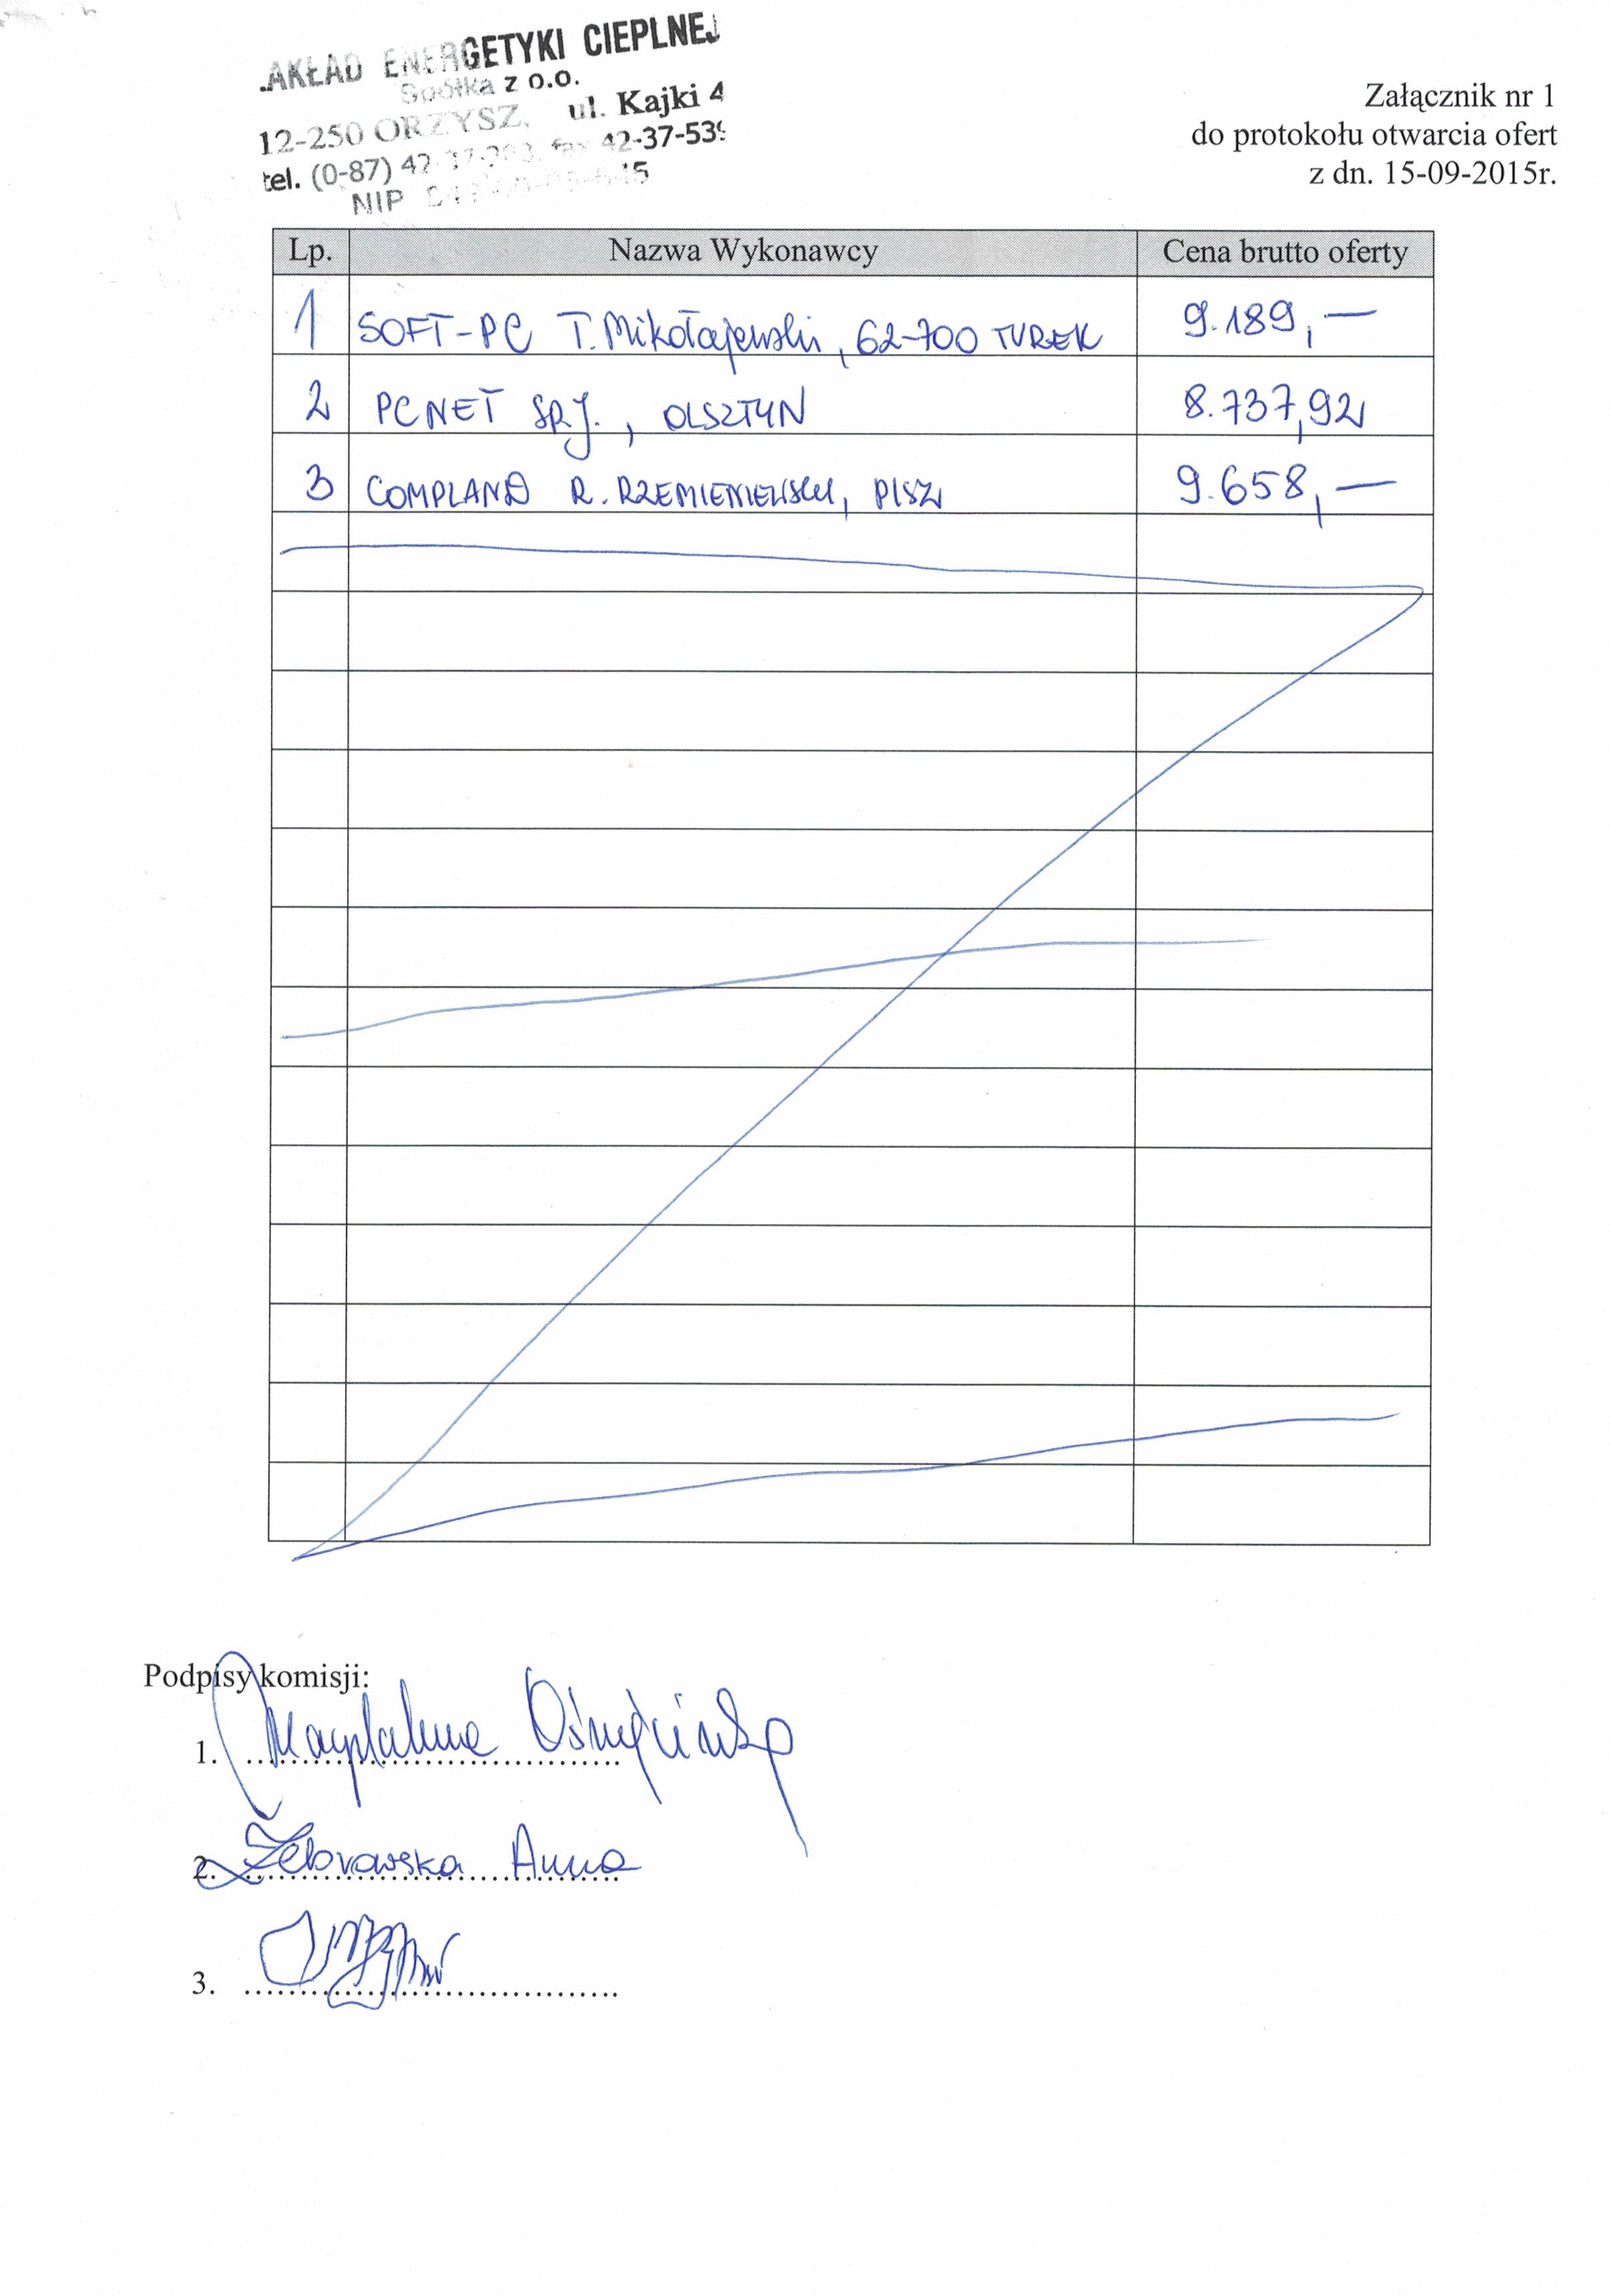 AKŁAD ENERGETYKI CIEPLNEJ
Spółka z o.o.
12-250 ORZYSZ, ul. Kajki 4
tel. (0-87) fax 42-37-539
NIP
Załącznik nr 1
do protokołu otwarcia ofert
z dn. 15-09-2015r.
Lp. Nazwa Wykonawcy Cena brutto oferty
1 SOFT-PC T. Mikołajewski, 62-700 TUREK 9.189,—
2 PCNET SP.J., OLSZTYN 8.737,92
3 COMPLAND R. RZEMIENIEWSKI, PISZ 9.658,—
Podpisy komisji:
1. Magdalena
2. Żebrowska Anna
3.